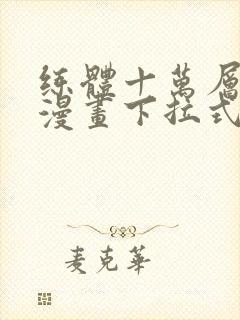 练體十萬層
漫畫下拉式
麦克華